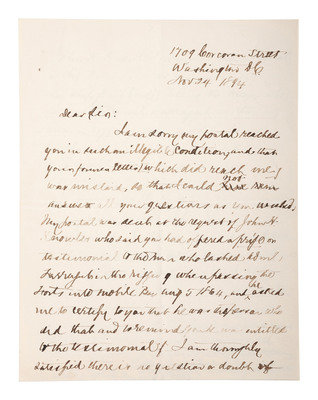 1709 Corcoran Street
Washington DC
Nov. 24 1894
Dear Sir:
I am sorry my postal reached
you in such an illegible condition, and that
your former letter, which did reach me,
was mislaid, so that I could not
answer all your questions as you wished.
My postal was sent at the request of John H.
Knowles who said you had offered a prize or
testimonial to the man who lashed Adml
Farragut in the rigging when passing the
forts into Mobile Bay Aug 5 1864, and he asked
me to certify to you that he was the person who
did that and to remind you he was entitled
to the testimonial. I am thoroughly
satisfied there is no question or doubt of